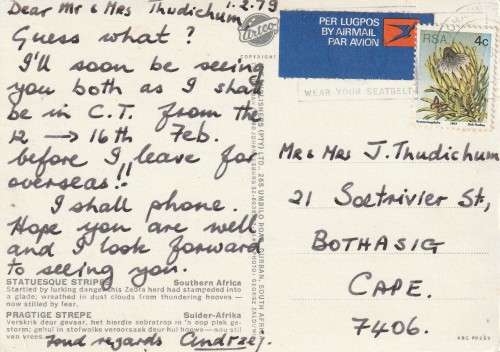 Dear Mr & Mrs Thudichum 1.2.79
Guess what?
I'll soon be seeing
you both as I shall
be in C.T. from the
12 → 16th Feb.
before I leave for
overseas!!
I shall phone.
Hope you are well
and I look forward
to seeing you.
STATUESQUE STRIPES Southern Africa
Startled by lurking danger this Zebra herd had stampeded into
a glade; wreathed in dust clouds from thundering hooves —
now stilled by fear.
PRAGTIGE STREPE Suider-Afrika
Verskrik deur gevaar, het hierdie sebratrop in 'n oop plek ge-
storm; gehul in stofwolke veroorsaak deur hul hoewe — nou stil
Fond regards Andrzej.
Artco
COPYRIGHT
PUBLISHERS (PTY) LTD. 265 UMBILO ROAD, DURBAN, SOUTH AFRICA
PER LUGPOS
BY AIRMAIL
PAR AVION
WEAR YOUR SEATBELT
RSA 4c
Mr & Mrs J. Thudichum
21 Soetrivier St,
BOTHASIG
CAPE.
7406.